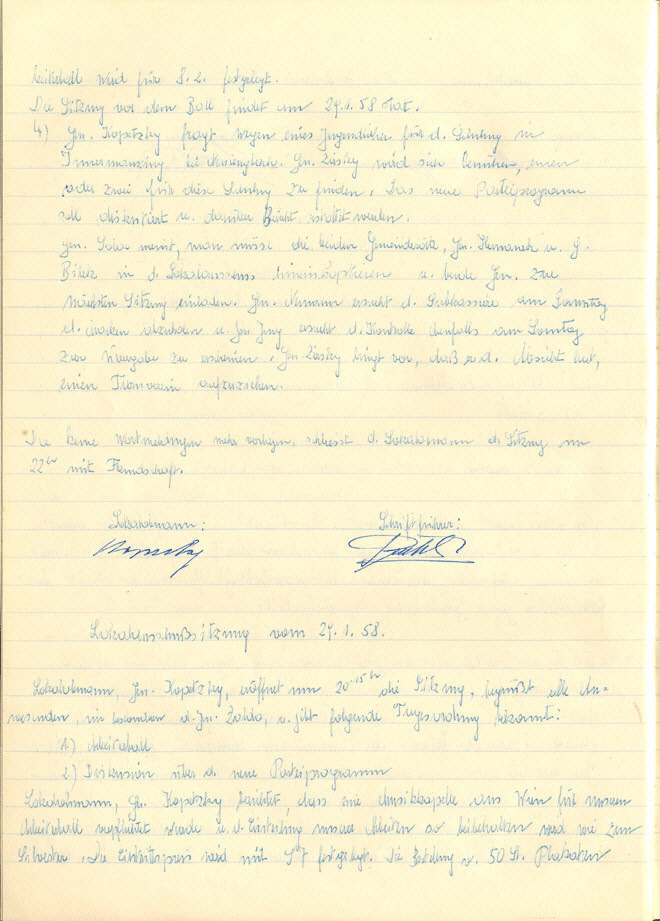 beiterball wird für 8.2. festgelegt.
Die Sitzung vor dem Ball findet am 29.1.58 statt.
4) Gen. Kopetzky fragt wegen eines Jugendlicher für d. Schulung in
Innermanzing bei Neulengbach. Gen. wird sich bemühen, einen
oder zwei für diese Schulung zu finden. Das neue Parteiprogramm
soll diskutiert u. darüber Bericht erstattet werden.
Gen. meint, man müsse die beiden Gemeinderäte, Gen. u. G.
in d. Lokalausschuss u. beide Gen. zur
nächsten Sitzung einladen. Gen. Neumann ersucht d. Subkassiere am Samstag
d. Marken abzuholen u. Gen. Jung ersucht d. Kontrolle ebenfalls am Samstag
zur zu erscheinen. Gen. bringt vor, daß er d. Absicht hat,
einen aufzuziehen.
Da keine Wortmeldungen mehr vorliegen, schliesst d. Lokalobmann d. Sitzung um
22 Uhr mit Freundschaft.
Lokalobmann: Schriftführer:
Kopetzky
Lokalausschußsitzung vom 29.1.58.
Lokalobmann, Gen. Kopetzky, eröffnet um 20.15 Uhr die Sitzung, begrüßt alle An=
wesenden, im besondern d. Gen. u. gibt folgende Tagesordnung bekannt:
1.) Arbeiterball
2.) Diskussion über d. neue Parteiprogramm
Lokalobmann, Gen. Kopetzky berichtet, dass eine Musikkapelle aus Wien für unseren
Arbeiterball verpflichtet wurde u. d. Einteilung unserer Arbeiten so beibehalten wird wie zum
Silvester. Die Eintrittspreis wird mit S 7 festgelegt. Die Bestellung v. 50 St. Plakaten